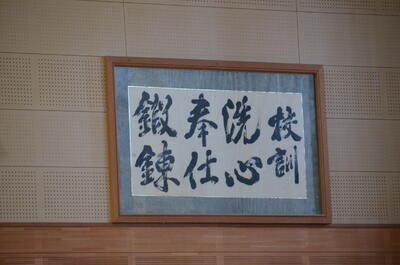 校訓
洗心
奉仕
鍛錬